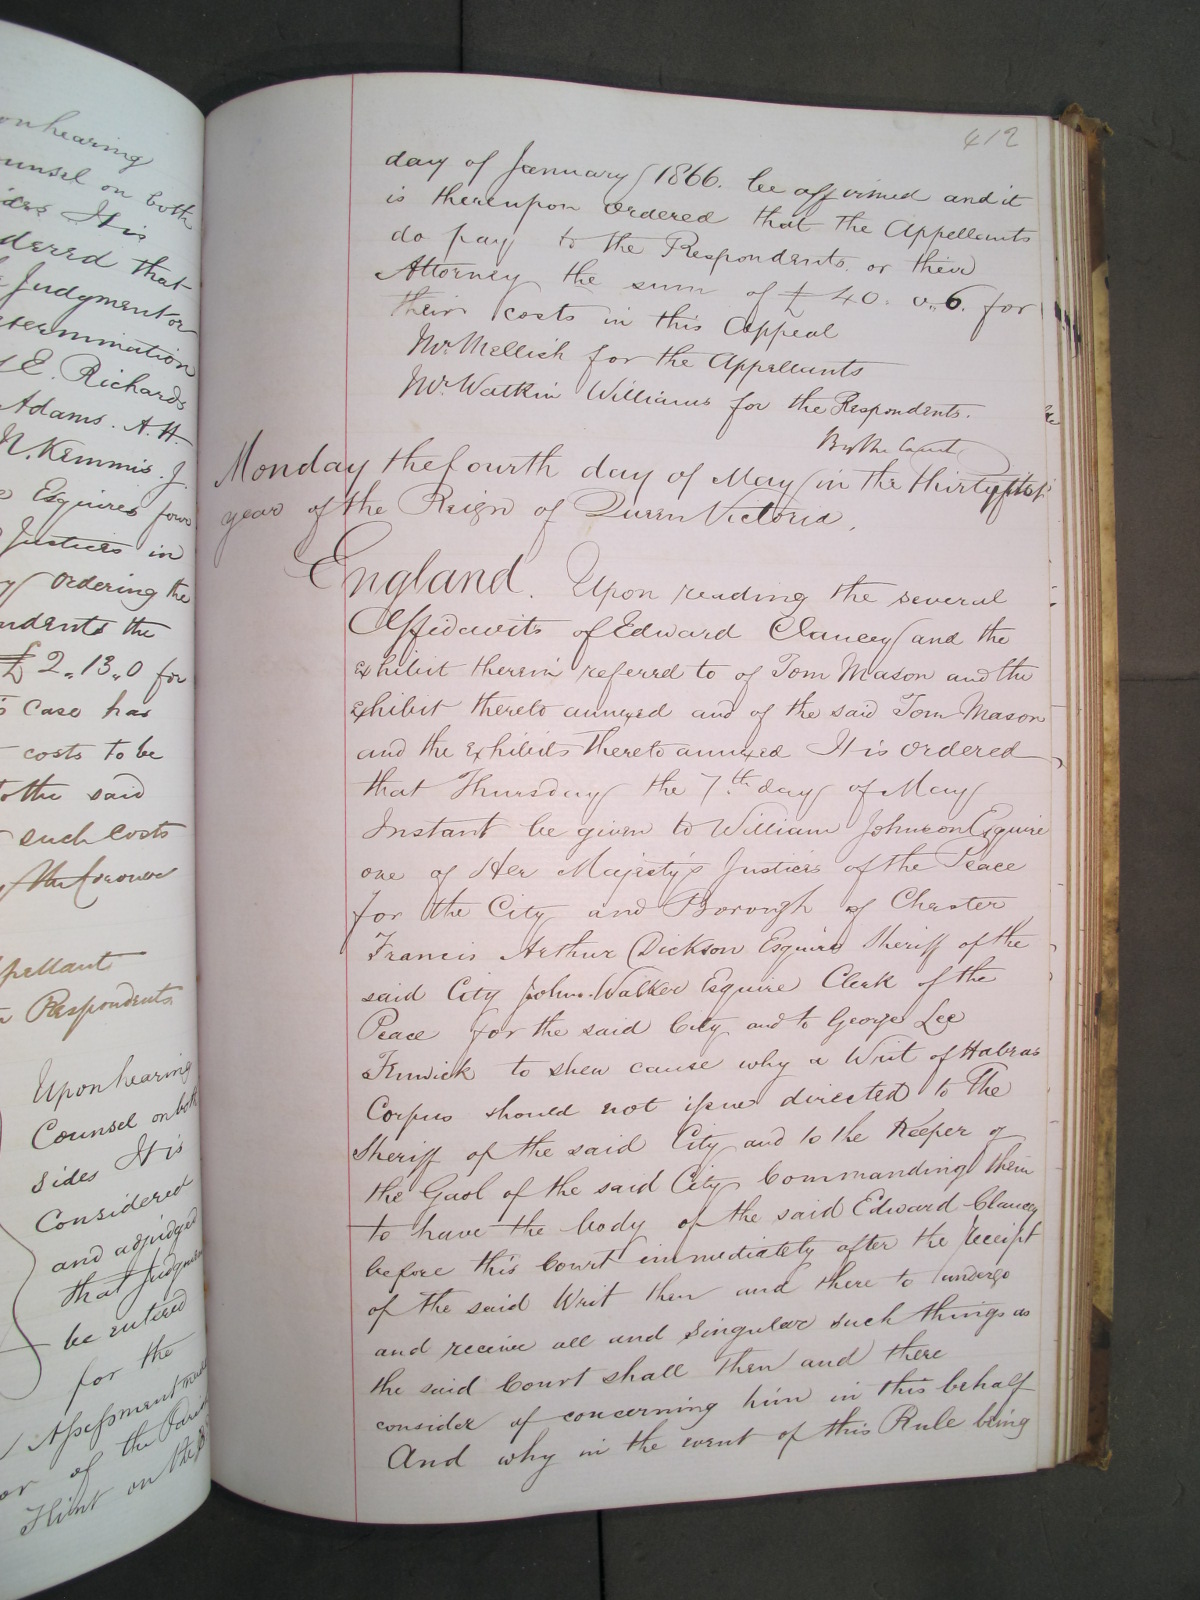 on hearing
ounsel on both
ides It is
dered that
e Judgment or
etermination
E. Richards
Adams. A. H.
N. Kemmis. J.
Esquires four
Justices in
ordering the
ndents the
£2.,13.,0 for
s case has
costs to be
to the said
such costs
ppellant
Respondents
Upon hearing
Counsel on both
sides It is
Considered
and adjudged
that Judgmen
be entered
for the
Assessment made
or of the Paris
Flint on the
412
day of January 1866. be affirmed and it
is thereupon ordered that the Appellants
do pay to the Respondents. or their
Attorney the sum of £40. 0.,6. for
their costs in this Appeal
Mr. Mellish for the Appellants
Mr. Watkin Williams for the Respondents.
By the Court
Monday the fourth day of May in the thirty first
year of the Reign of Queen Victoria.
England. Upon reading the several
Affidavits of Edward Clancey and the
exhibit therein referred to of Tom Mason and the
exhibit thereto annexed and of the said Tom Mason
and the exhibits thereto annexed It is ordered
that Thursday the 7th day of May
Instant be given to William Johnson Esquire
one of Her Majesty's Justices of the Peace
for the City and Borough of Chester
Francis Arthur Dickson Esquire Sheriff of the
said City John Walker Esquire Clerk of the
Peace for the said City and to George Lee
Fenwick to shew cause why a Writ of Habeas
Corpus should not issue directed to The
Sheriff of the said City and to the Keeper of
the Gaol of the said City Commanding them
to have the body of the said Edward Clancey
before this Court immediately after the receipt
of the said Writ then and there to undergo
and receive all and singular such things as
the said Court shall then and there
consider of concerning him in this behalf
And why in the event of this Rule being